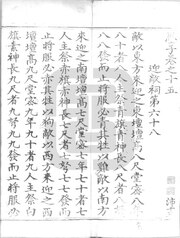 墨子卷之十五
迎敵祠第六十八
敵以東方來迎之東壇壇高八尺堂密八年
八十者八人主祭青旗青神長八尺者八弩
八八發而止將服必青其牲以雞敵以南方
來迎之南壇壇高七尺堂密七年七十者七
人主祭赤旗赤神長七尺者七弩七七發而
止將服必赤其牲以狗敵以西方來迎之西
壇壇高九尺堂密九年九十者九人主祭白
旗素神長九尺者九弩九九發而止將服必